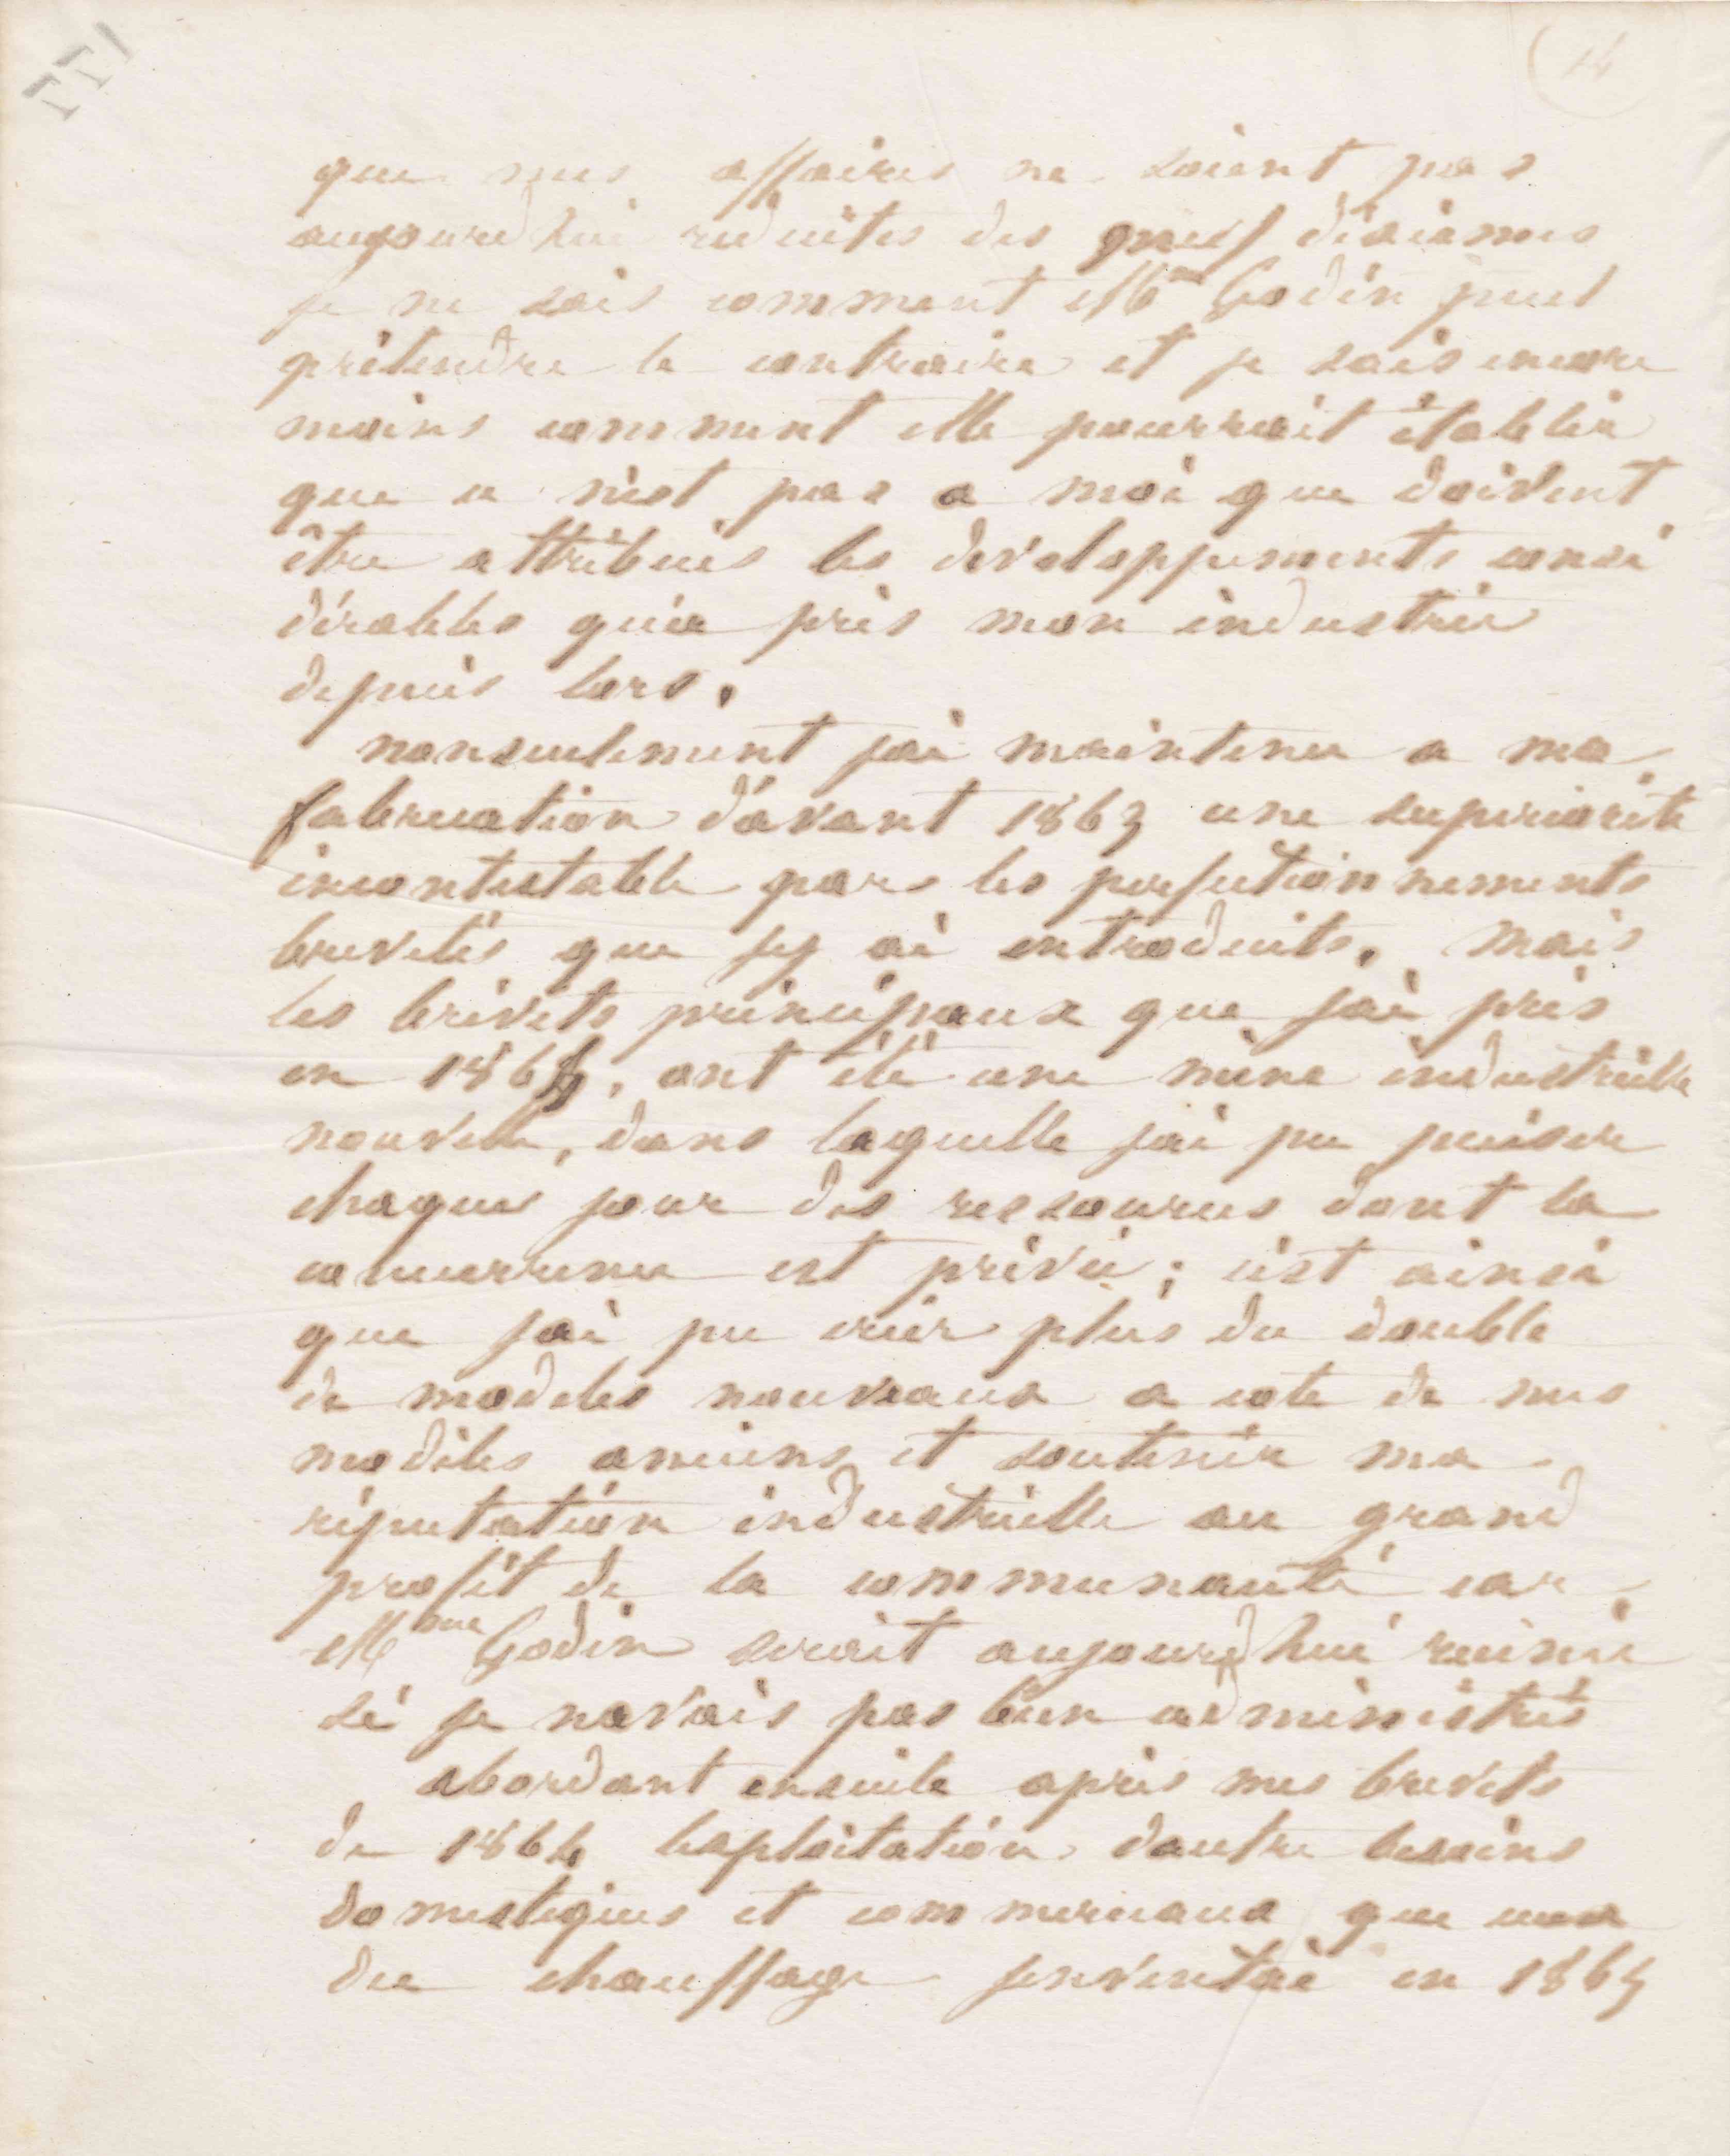 14
que mes affaires ne soient pas
aujourd'hui reduites des neuf dixièmes
je ne sais comment Mme Godin peut
prétendre le contraire et je sais encore
moins comment elle pourrait établir
que ce n'est pas a moi que doivent
être attribués les dévéloppements consi
dérables qu'a pris mon industrie
depuis lors.
nonseulement j'ai maintenu a ma
fabrication d'avant 1863 une superiorité
incontestable par les perfectionnements
brevetés que j'y ai introduits. Mais
les brévets principaux que j'ai pris
en 1864, ont été une mine industrielle
nouvelle, dans laquelle j'ai pu puiser
chaque jour des ressources dont la
concurrence est privée; c'est ainsi
que j'ai pu créer plus du double
de modeles nouveaux a coté de mes
modèles anciens et soutenir ma
réputation industrielle au grand
profit de la communauté car
Mme Godin serait aujourd'hui ruinée
si je n'avais pas bien administré
abordant ensuite après mes brevets
de 1864 l'exploitation d'autre besoins
domestiques et commerciaux que ceux
du chauffage j'inventai en 1865